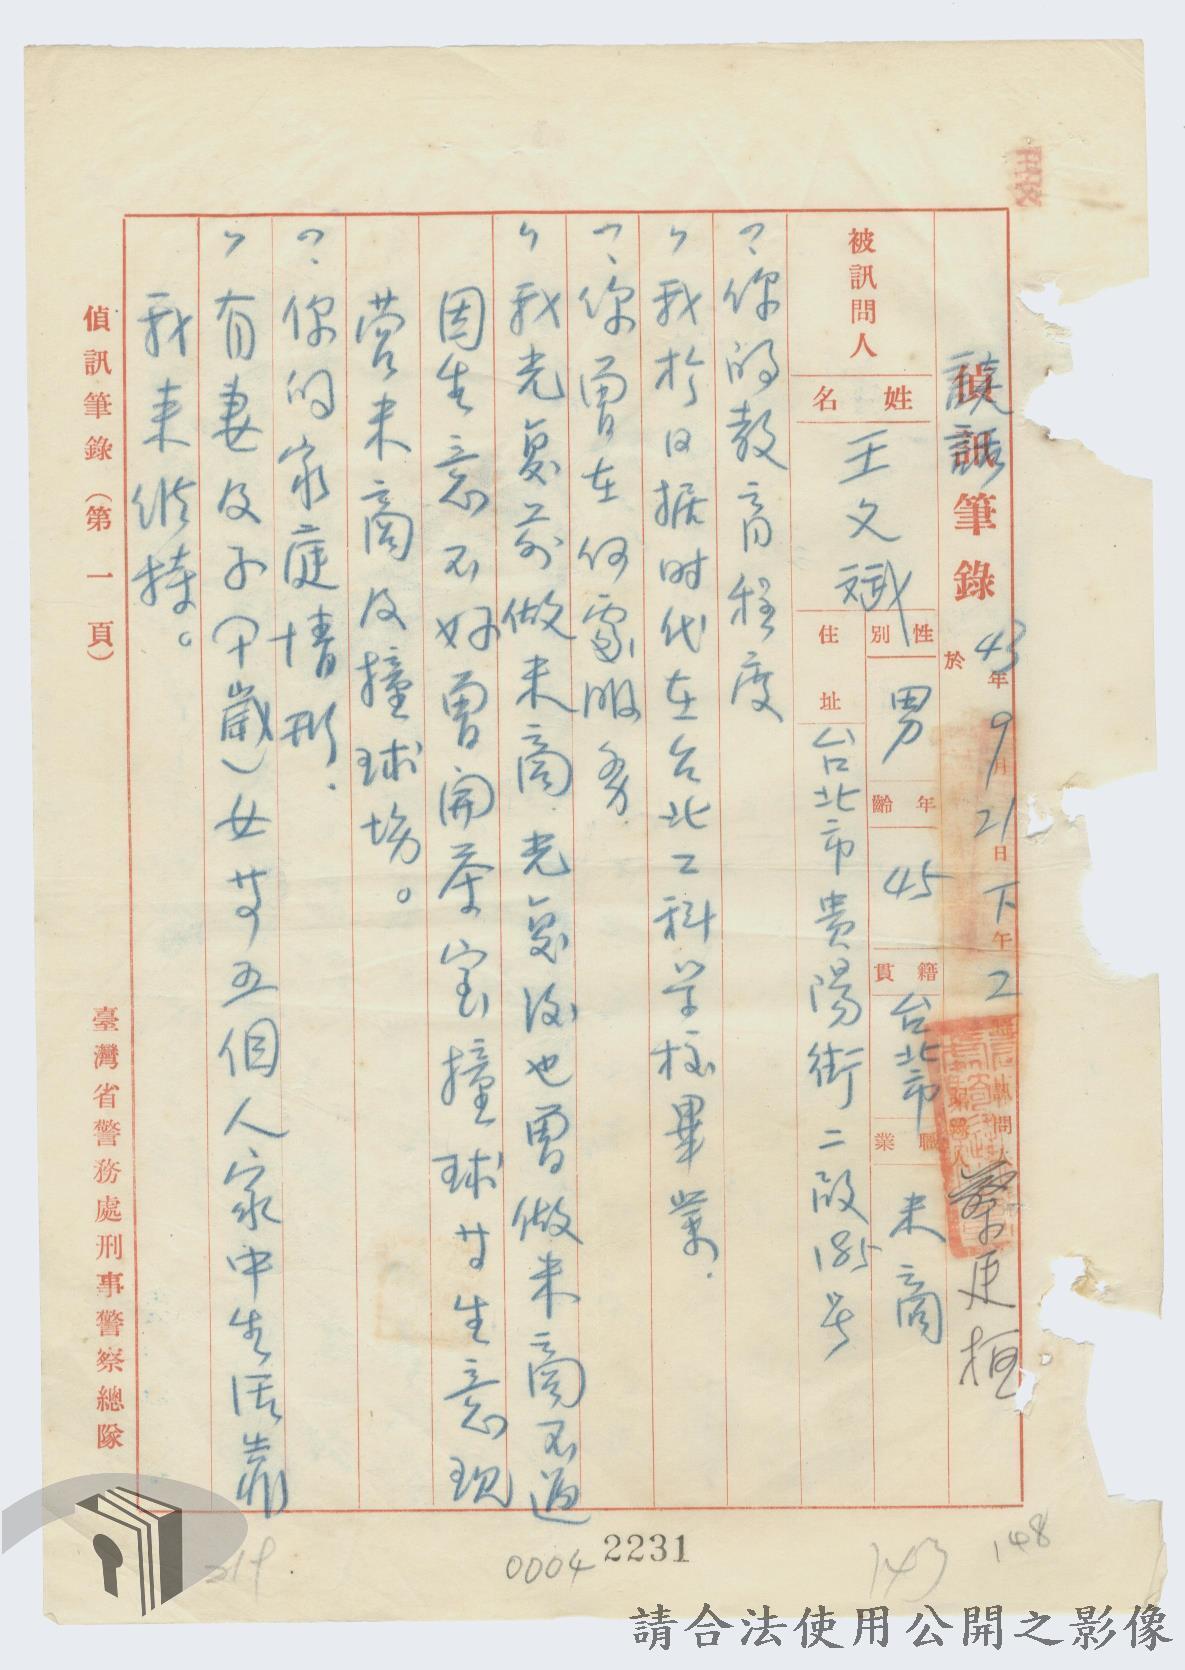 談話筆錄 於43年9月21日下午2 訊問人 蔡更植
被訊問人
姓名 王文斌 性別 男 年齡 45 籍貫 台北市 職業 米商
住址 台北市貴陽街二段185号
?你的教育程度
、我於日据时代在台北工科学校畢業.
?你曾在何處服务.
、我光复前做米商.光复後也曾做米商不過
因生意不好曾開茶室撞球廿生意現
营米商及撞球场。
?你的家庭情形.
、有妻及子(甲歲)女廿五個人家中生活靠
我來維持。
偵訊筆錄(第一頁)
臺灣省警務處刑事警察總隊
0004
2231
143
148
請合法使用公開之影像